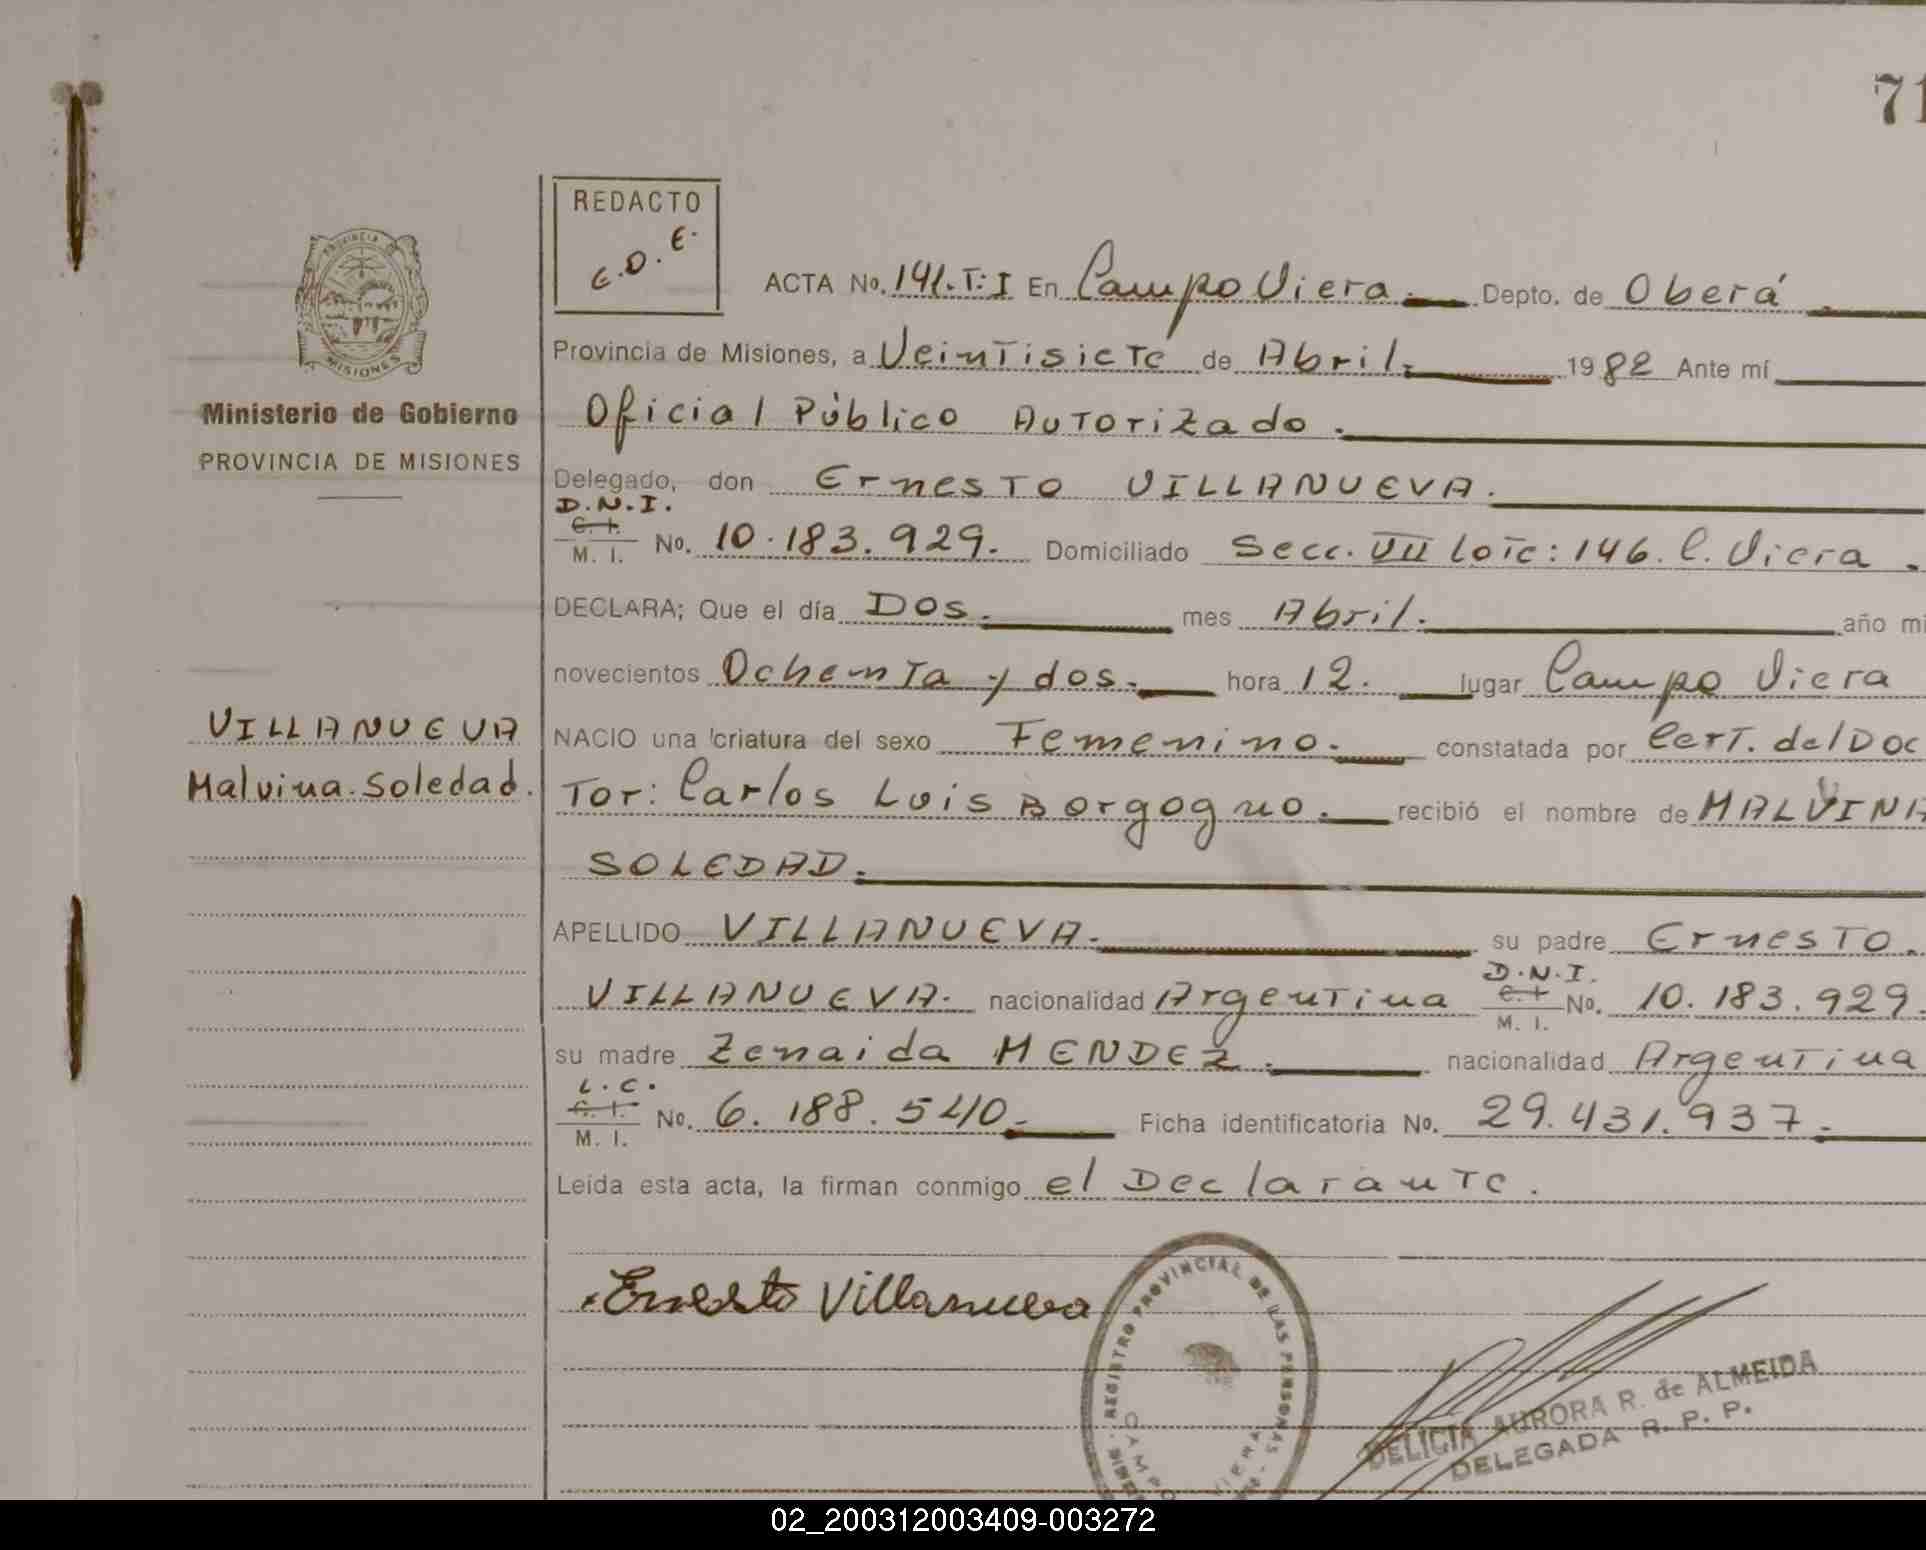 71
REDACTO
E.D.E.
PROVINCIA DE
MISIONES
ACTA No. 141.T:I En Campo Viera. Depto. de Oberá.
Provincia de Misiones, a VeinTisieTe de Abril. 1982 Ante mí
Ministerio de Gobierno
Oficial Público AuTorizado.
PROVINCIA DE MISIONES
Delegado, don ErnesTo VILLANUEVA.
D.N.I.
C. I.
M. I. No. 10.183.929. Domiciliado Secc. VII LoTe: 146. C. Viera.
DECLARA; Que el día Dos. mes Abril. año mi
novecientos OchenTa y dos. hora 12. lugar Campo Viera
VILLANUEVA
NACIO una criatura del sexo Femenino. constatada por CerT. del Doc
Malvina Soledad.
Tor: Carlos Luis Borgogno. recibió el nombre de MALVINA
SOLEDAD.
APELLIDO VILLANUEVA. su padre ErnesTo.
VILLANUEVA. nacionalidad ArgenTina D.N.I. C. I. M. I. No. 10.183.929.
su madre Zenaida MENDEZ. nacionalidad ArgenTina
L.C.
C. I.
M. I. No. 6.188.540. Ficha identificatoria No. 29.431.937.
Leida esta acta, la firman conmigo el DeclaranTe.
Ernesto Villanueva
REGISTRO PROVINCIAL DE LAS PERSONAS
CAMPO VIERA
DELICIA AURORA R. de ALMEIDA
DELEGADA R. P. P.
02_200312003409-003272